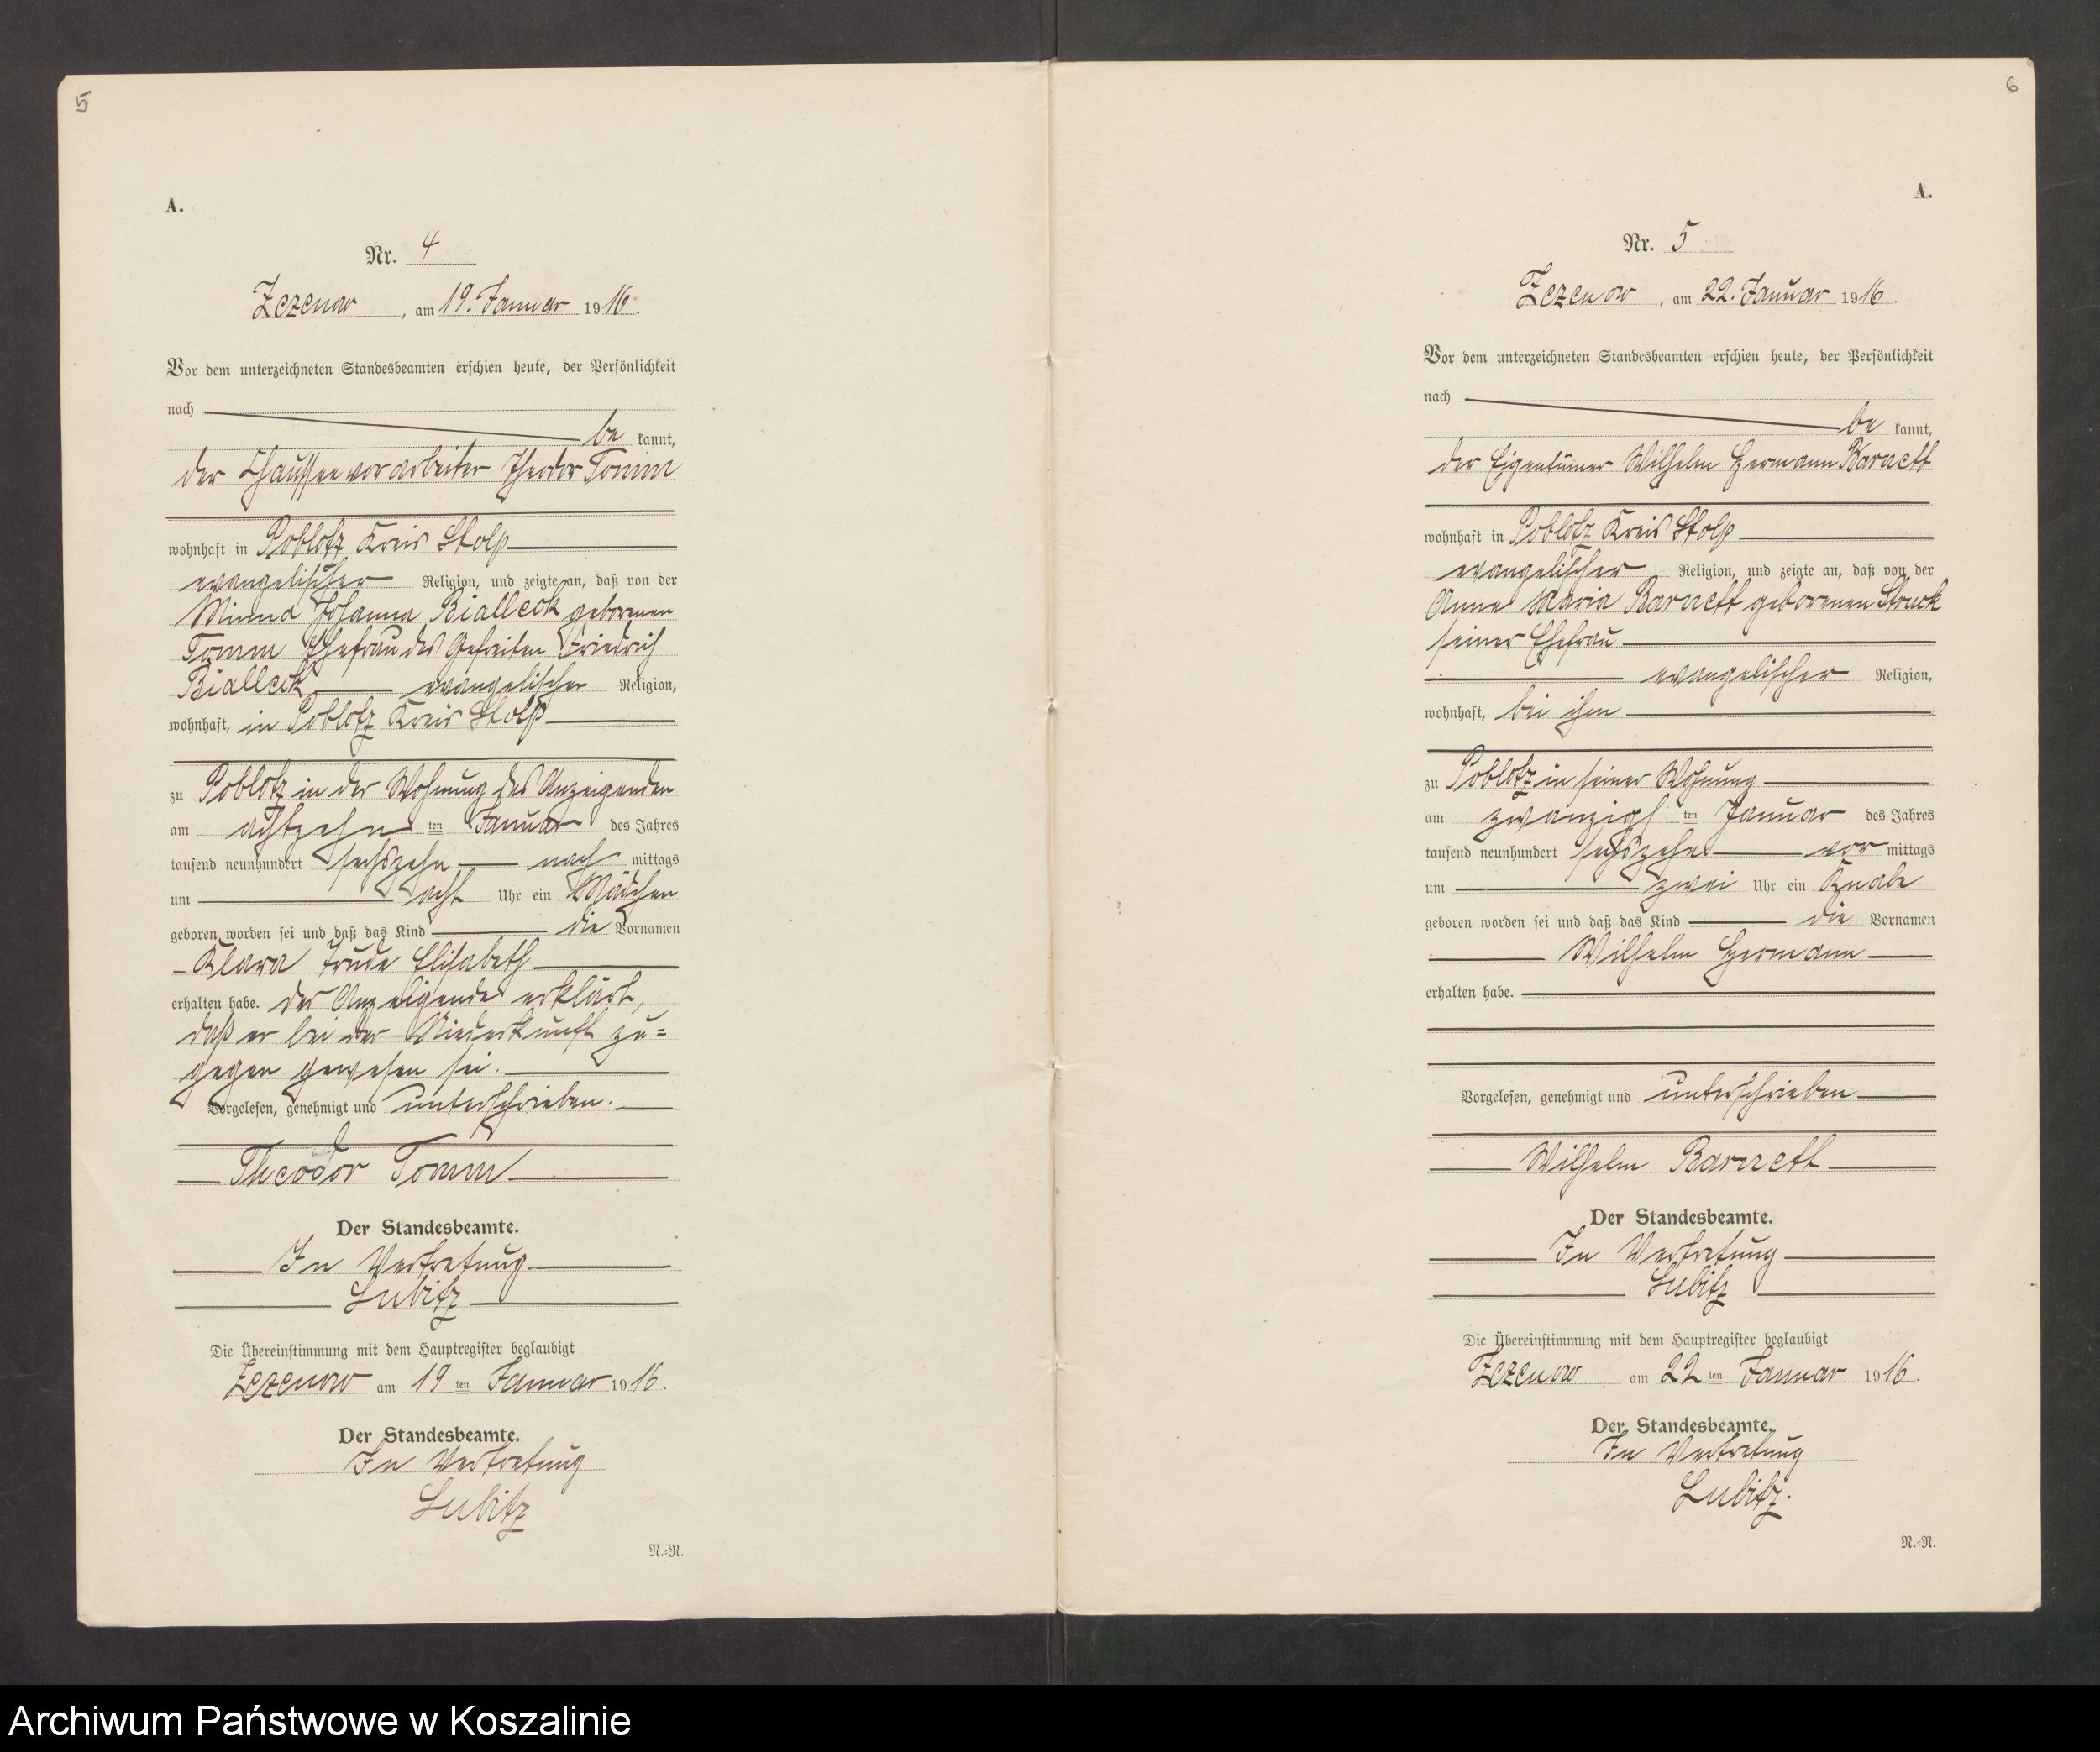 5
A.
Nr. 4
Zezenow, am 19. Januar 1916.
Vor dem unterzeichneten Standesbeamten erschien heute, der Persönlichkeit
nach
be kannt,
der Chausseevorarbeiter Theodor Tomm
wohnhaft in Poblotz Kreis Stolp
evangelischer Religion, und zeigte an, daß von der
Minna Johanna Bialleck geborenen
Tomm Ehefrau des Gefreiten Friedrich
Bialleck evangelischer Religion,
wohnhaft, in Poblotz Kreis Stolp
zu Poblotz in der Wohnung des Anzeigenden
am achtzehn ten Januar des Jahres
tausend neunhundert sechszehn nach mittags
um acht Uhr ein Mädchen
geboren worden sei und daß das Kind die Vornamen
Klara Trude Elisabeth
erhalten habe. Der Anzeigende erklärt,
daß er bei der Niederkunft zu=
gegen gewesen sei.
Vorgelesen, genehmigt und unterschrieben.
Theodor Tomm
Der Standesbeamte.
In Vertretung
Lubitz
Die Übereinstimmung mit dem Hauptregister beglaubigt
Zezenow am 19 ten Januar 1916.
Der Standesbeamte.
In Vertretung
Lubitz
N.=R.
6
A.
Nr. 5
Zezenow, am 22. Januar 1916.
Vor dem unterzeichneten Standesbeamten erschien heute, der Persönlichkeit
nach
be kannt,
der Eigentümer Wilhelm Hermann Barnett
wohnhaft in Poblotz Kreis Stolp
evangelischer Religion, und zeigte an, daß von der
Anna Maria Barnett geborenen Struck
seiner Ehefrau
evangelischer Religion,
wohnhaft, bei ihm
zu Poblotz in seiner Wohnung
am zwanzigs ten Januar des Jahres
tausend neunhundert sechszehn vor mittags
um zwei Uhr ein Knabe
geboren worden sei und daß das Kind die Vornamen
Wilhelm Hermann
erhalten habe.
Vorgelesen, genehmigt und unterschrieben
Wilhelm Barnett
Der Standesbeamte.
In Vertretung
Lubitz
Die Übereinstimmung mit dem Hauptregister beglaubigt
Zezenow am 22 ten Januar 1916.
Der Standesbeamte.
In Vertretung
Lubitz.
N.=R.
Archiwum Państwowe w Koszalinie